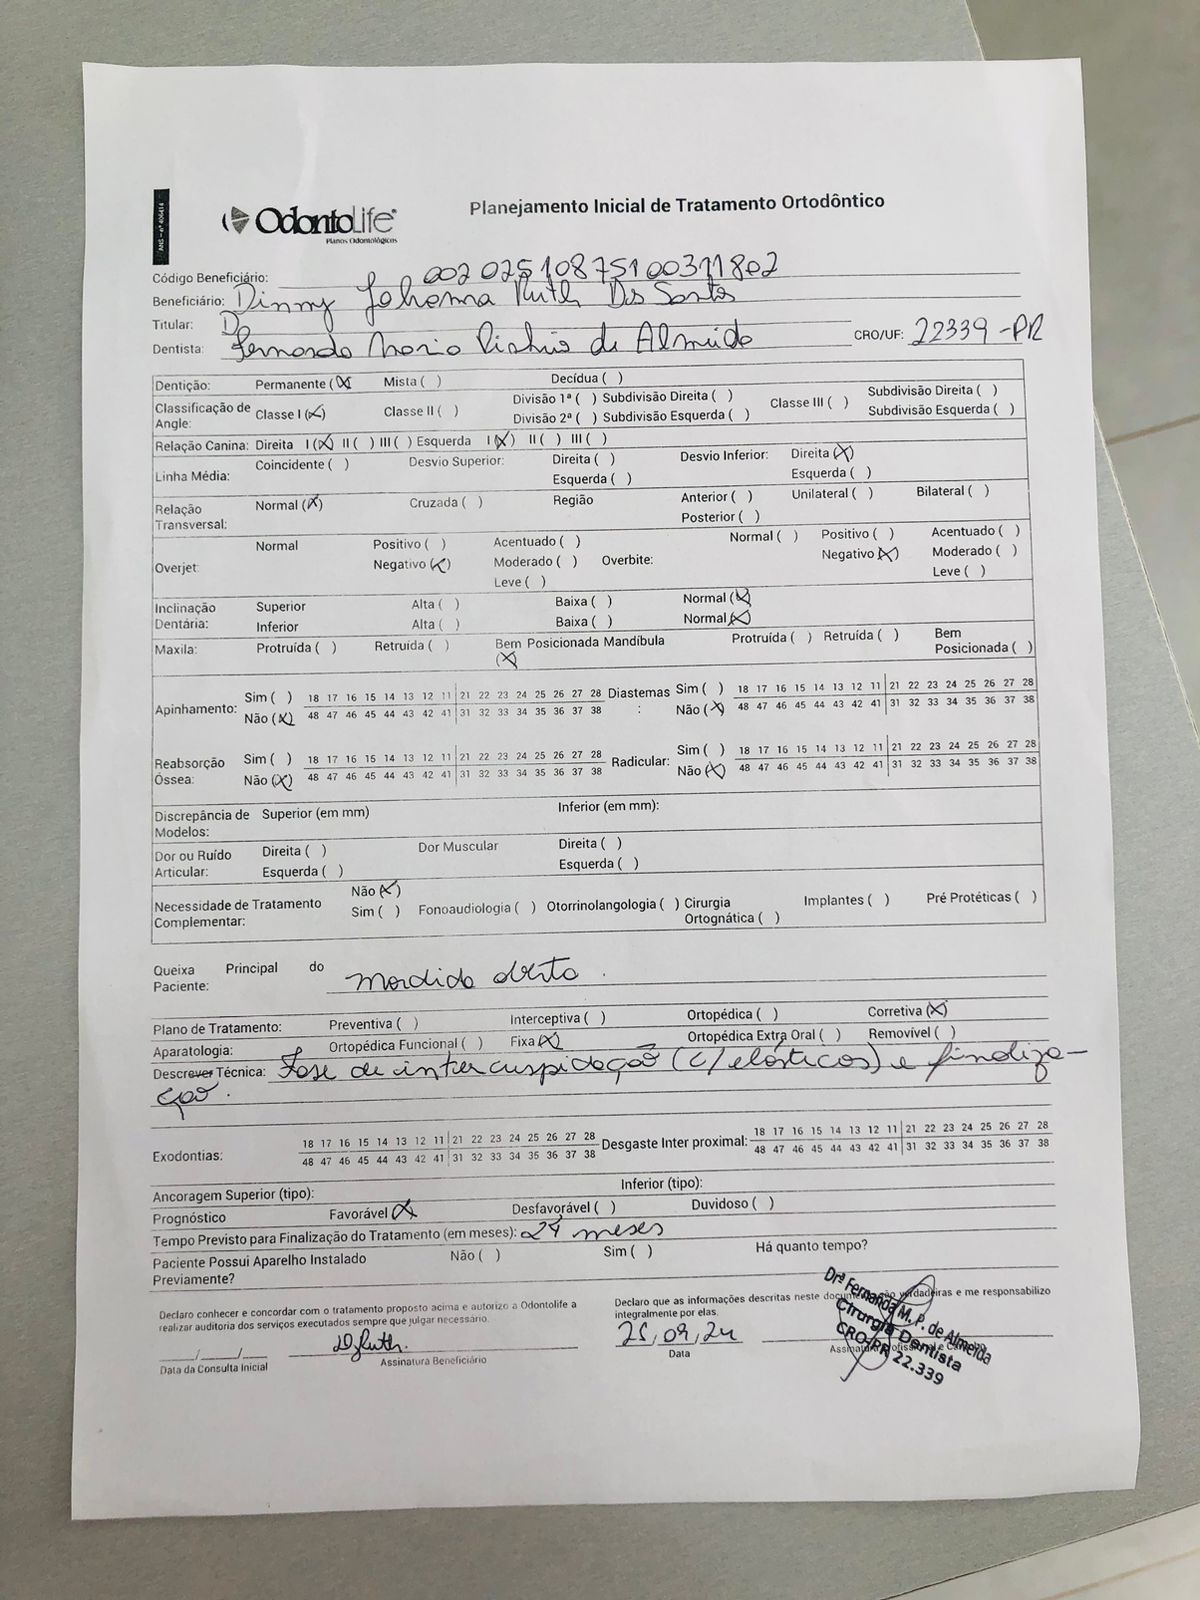 ANS - nº 406414
OdontoLife®
Planos Odontológicos
Planejamento Inicial de Tratamento Ortodôntico
Código Beneficiário: 00202510875100311802
Beneficiário: Dinny Johanna Ruth Dos Santos
Titular: D
Dentista: Fernanda Maria Pinhio de Almeida CRO/UF: 22339 -PR
Dentição: Permanente (X) Mista ( ) Decídua ( )
Classificação de Angle: Classe I (X) Classe II ( ) Divisão 1ª ( ) Subdivisão Direita ( ) Classe III ( ) Subdivisão Direita ( )
Divisão 2ª ( ) Subdivisão Esquerda ( ) Subdivisão Esquerda ( )
Relação Canina: Direita I (X) II ( ) III ( ) Esquerda I (X) II ( ) III ( )
Linha Média: Coincidente ( ) Desvio Superior: Direita ( ) Desvio Inferior: Direita (X)
Esquerda ( ) Esquerda ( )
Relação Transversal: Normal (X) Cruzada ( ) Região Anterior ( ) Unilateral ( ) Bilateral ( )
Posterior ( )
Overjet: Normal Positivo ( ) Acentuado ( ) Overbite: Normal ( ) Positivo ( ) Acentuado ( )
Negativo (X) Moderado ( ) Negativo (X) Moderado ( )
Leve ( ) Leve ( )
Inclinação Dentária: Superior Alta ( ) Baixa ( ) Normal (X)
Inferior Alta ( ) Baixa ( ) Normal (X)
Maxila: Protruída ( ) Retruída ( ) Bem Posicionada (X) Mandíbula Protruída ( ) Retruída ( ) Bem Posicionada ( )
Apinhamento: Sim ( ) 18 17 16 15 14 13 12 11 21 22 23 24 25 26 27 28 Diastemas: Sim ( ) 18 17 16 15 14 13 12 11 21 22 23 24 25 26 27 28
Não (X) 48 47 46 45 44 43 42 41 31 32 33 34 35 36 37 38 Não (X) 48 47 46 45 44 43 42 41 31 32 33 34 35 36 37 38
Reabsorção Óssea: Sim ( ) 18 17 16 15 14 13 12 11 21 22 23 24 25 26 27 28 Radicular: Sim ( ) 18 17 16 15 14 13 12 11 21 22 23 24 25 26 27 28
Não (X) 48 47 46 45 44 43 42 41 31 32 33 34 35 36 37 38 Não (X) 48 47 46 45 44 43 42 41 31 32 33 34 35 36 37 38
Discrepância de Modelos: Superior (em mm) Inferior (em mm):
Dor ou Ruído Articular: Direita ( ) Dor Muscular Direita ( )
Esquerda ( ) Esquerda ( )
Necessidade de Tratamento Complementar: Não (X)
Sim ( ) Fonoaudiologia ( ) Otorrinolangologia ( ) Cirurgia Ortognática ( ) Implantes ( ) Pré Protéticas ( )
Queixa Principal do Paciente: Mordida aberta.
Plano de Tratamento: Preventiva ( ) Interceptiva ( ) Ortopédica ( ) Corretiva (X)
Aparatologia: Ortopédica Funcional ( ) Fixa (X) Ortopédica Extra Oral ( ) Removível ( )
Descrever Técnica: Fase de intercuspidação (c/ elásticos) e finaliza-
ção.
Exodontias: 18 17 16 15 14 13 12 11 21 22 23 24 25 26 27 28 Desgaste Inter proximal: 18 17 16 15 14 13 12 11 21 22 23 24 25 26 27 28
48 47 46 45 44 43 42 41 31 32 33 34 35 36 37 38 48 47 46 45 44 43 42 41 31 32 33 34 35 36 37 38
Ancoragem Superior (tipo): Inferior (tipo):
Prognóstico Favorável (X) Desfavorável ( ) Duvidoso ( )
Tempo Previsto para Finalização do Tratamento (em meses): 24 meses
Paciente Possui Aparelho Instalado Previamente? Não ( ) Sim ( ) Há quanto tempo?
Declaro conhecer e concordar com o tratamento proposto acima e autorizo a Odontolife a
realizar auditoria dos serviços executados sempre que julgar necessário.
Declaro que as informações descritas neste documento são verdadeiras e me responsabilizo
integralmente por elas.
__/__/__ DJRuth.
Data da Consulta Inicial Assinatura Beneficiário
25,09,24
Data
Drª Fernanda M. P. de Almeida
Cirurgiã Dentista
CRO/PR 22.339